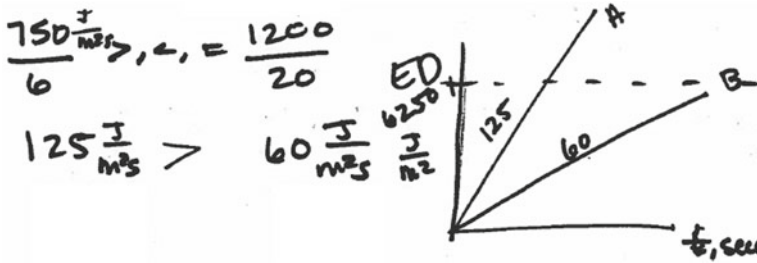 750 J/m²s >, <, = 1200
6 20
125 J/m²s > 60 J/m²s
ED
6250 J/m²
A
B
125
60
t, sec